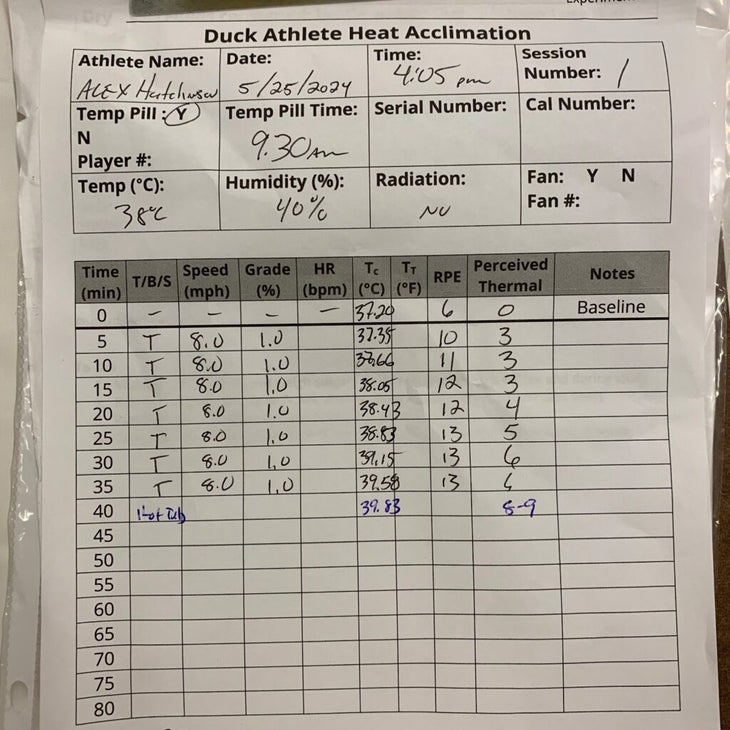 Duck Athlete Heat Acclimation
Athlete Name: Date: Time: Session
ALEX Hutchinson 5/25/2024 4:05 pm Number: 1
Temp Pill : Y Temp Pill Time: Serial Number: Cal Number:
N 9.30Am
Player #:
Temp (°C): Humidity (%): Radiation: Fan: Y N
38°C 40% NO Fan #:
Time T/B/S Speed Grade HR Tc TT RPE Perceived Notes
(min) (mph) (%) (bpm) (°C) (°F) Thermal
0 – – – – 37.20 6 0 Baseline
5 T 8.0 1.0 37.35 10 3
10 T 8.0 1.0 37.66 11 3
15 T 8.0 1.0 38.05 12 3
20 T 8.0 1.0 38.43 12 4
25 T 8.0 1.0 38.83 13 5
30 T 8.0 1.0 39.15 13 6
35 T 8.0 1.0 39.58 13 6
40 Hot Tub 39.83 8-9
45
50
55
60
65
70
75
80